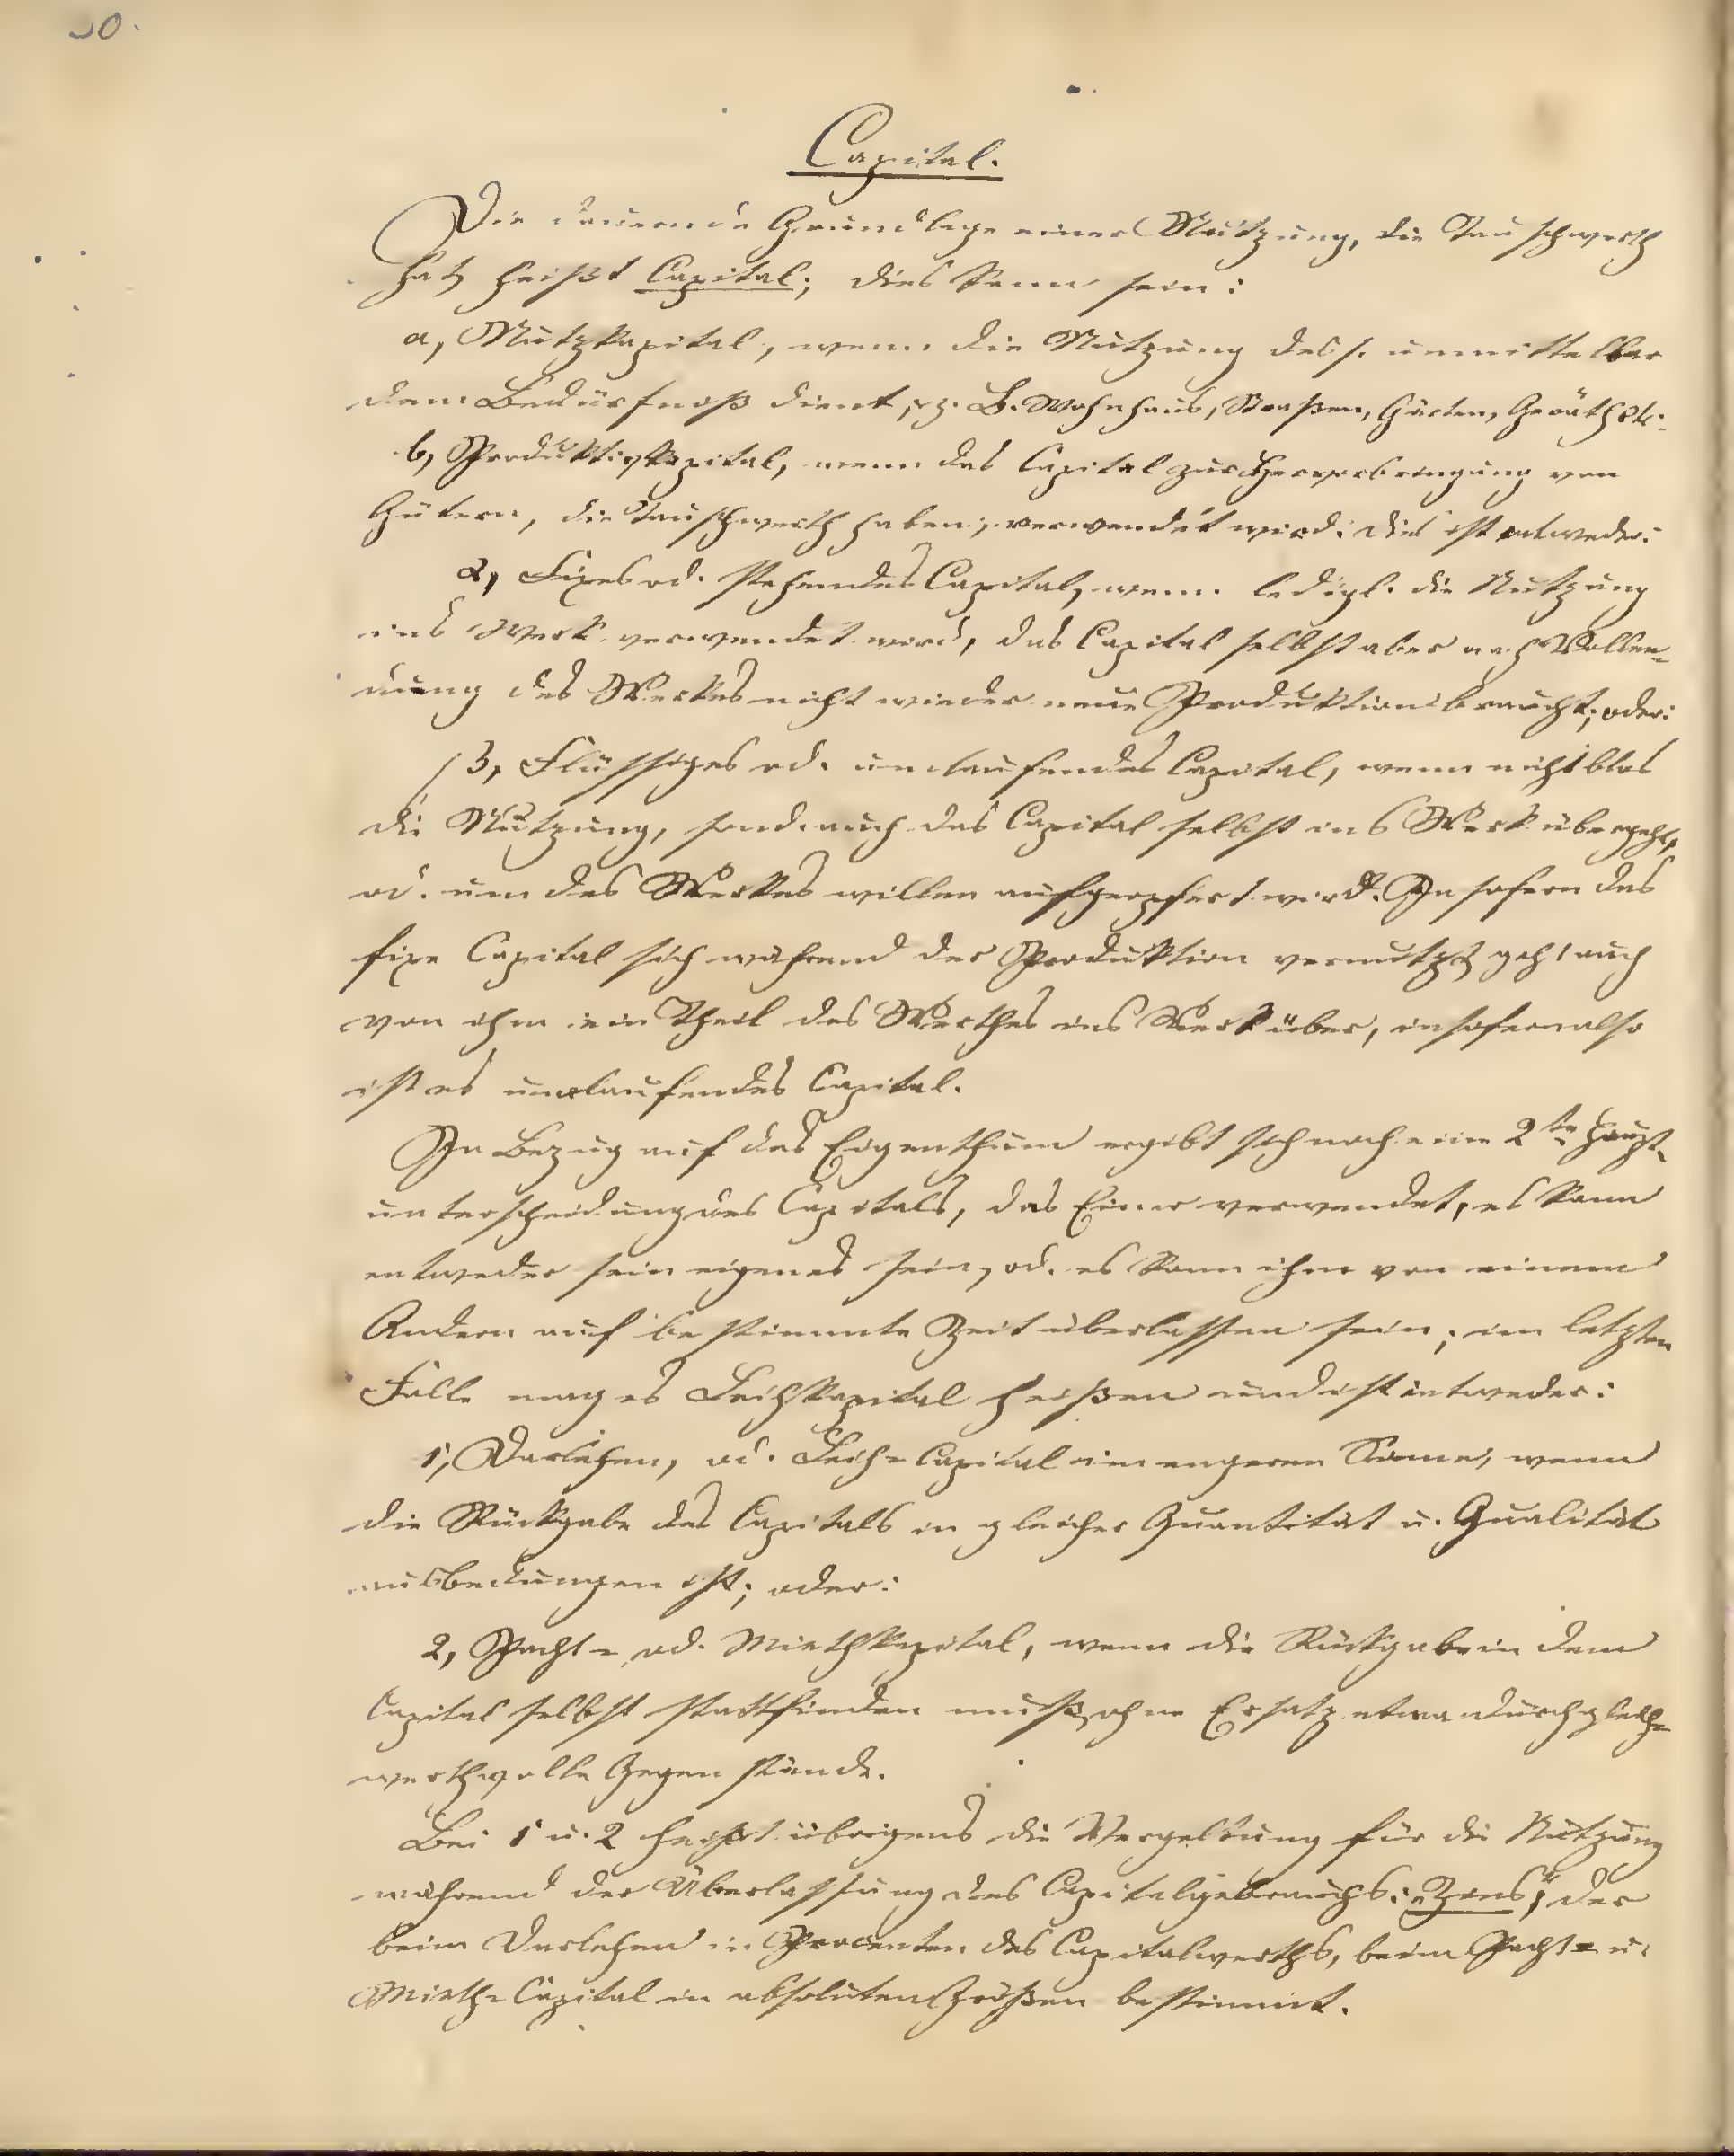 30.
Capital.
Die dauernde Grundlage einer Nutzung, die Tauschwerth
hat, heißt Capital; dies kann sein:
a, Nutzkapital, wenn die Nutzung dess. unmittelbar
dem Bedürfniß dient, z. B. Wohnhaus, Straßen, Gärten, Geräth etc.
b, Produktivkapital, wenn das Capital zur Hervorbringung von
Gütern, die Tauschwerth haben, verwendet wird: dies ist entweder:
α, Fixes od. stehendes Capital, wenn ledigl. die Nutzung
ins Werk verwendet wird, das Capital selbst aber nach Vollen-
dung des Werkes nicht wieder neue Produktion braucht; oder:
β, Flüssiges od. umlaufendes Capital, wenn nicht blos
die Nutzung, sond. auch das Capital selbst ins Werk übergeht,
od. um des Werkes willen aufgeopfert wird. In sofern das
fixe Capital sich während der Produktion vernutzt, geht auch
von ihm ein Theil des Werthes ins Werk über, insofern also
ist es umlaufendes Capital.
In Bezug auf das Eigenthum ergibt sich noch eine 2te Haupt-
unterscheidung des Capitals, das Einer verwendet, es kann
entweder sein eigenes sein, od. es kann ihm von einem
Andern auf bestimmte Zeit überlassen sein; im letzten
Falle mag es Leihkapital heißen und ist entweder:
1, Darlehen, od. Leih-Capital im engeren Sinne, wenn
die Rückgabe des Capitals in gleicher Quantität u. Qualität
ausbedungen ist; oder:
2, Pacht- od. Miethkapital, wenn die Rückgabe in dem
Capital selbst stattfinden muß, ohne Ersatz etwa durch gleich-
werthvolle Gegenstände.
Bei 1 u. 2 heißt übrigens die Vergeltung für die Nutzung
während der Überlassung des Capitalgebrauchs: „Zins“, der
beim Darlehen in Procenten des Capitalwerths, beim Pacht- u.
Mieth-Capital in absoluten Größen bestimmt.